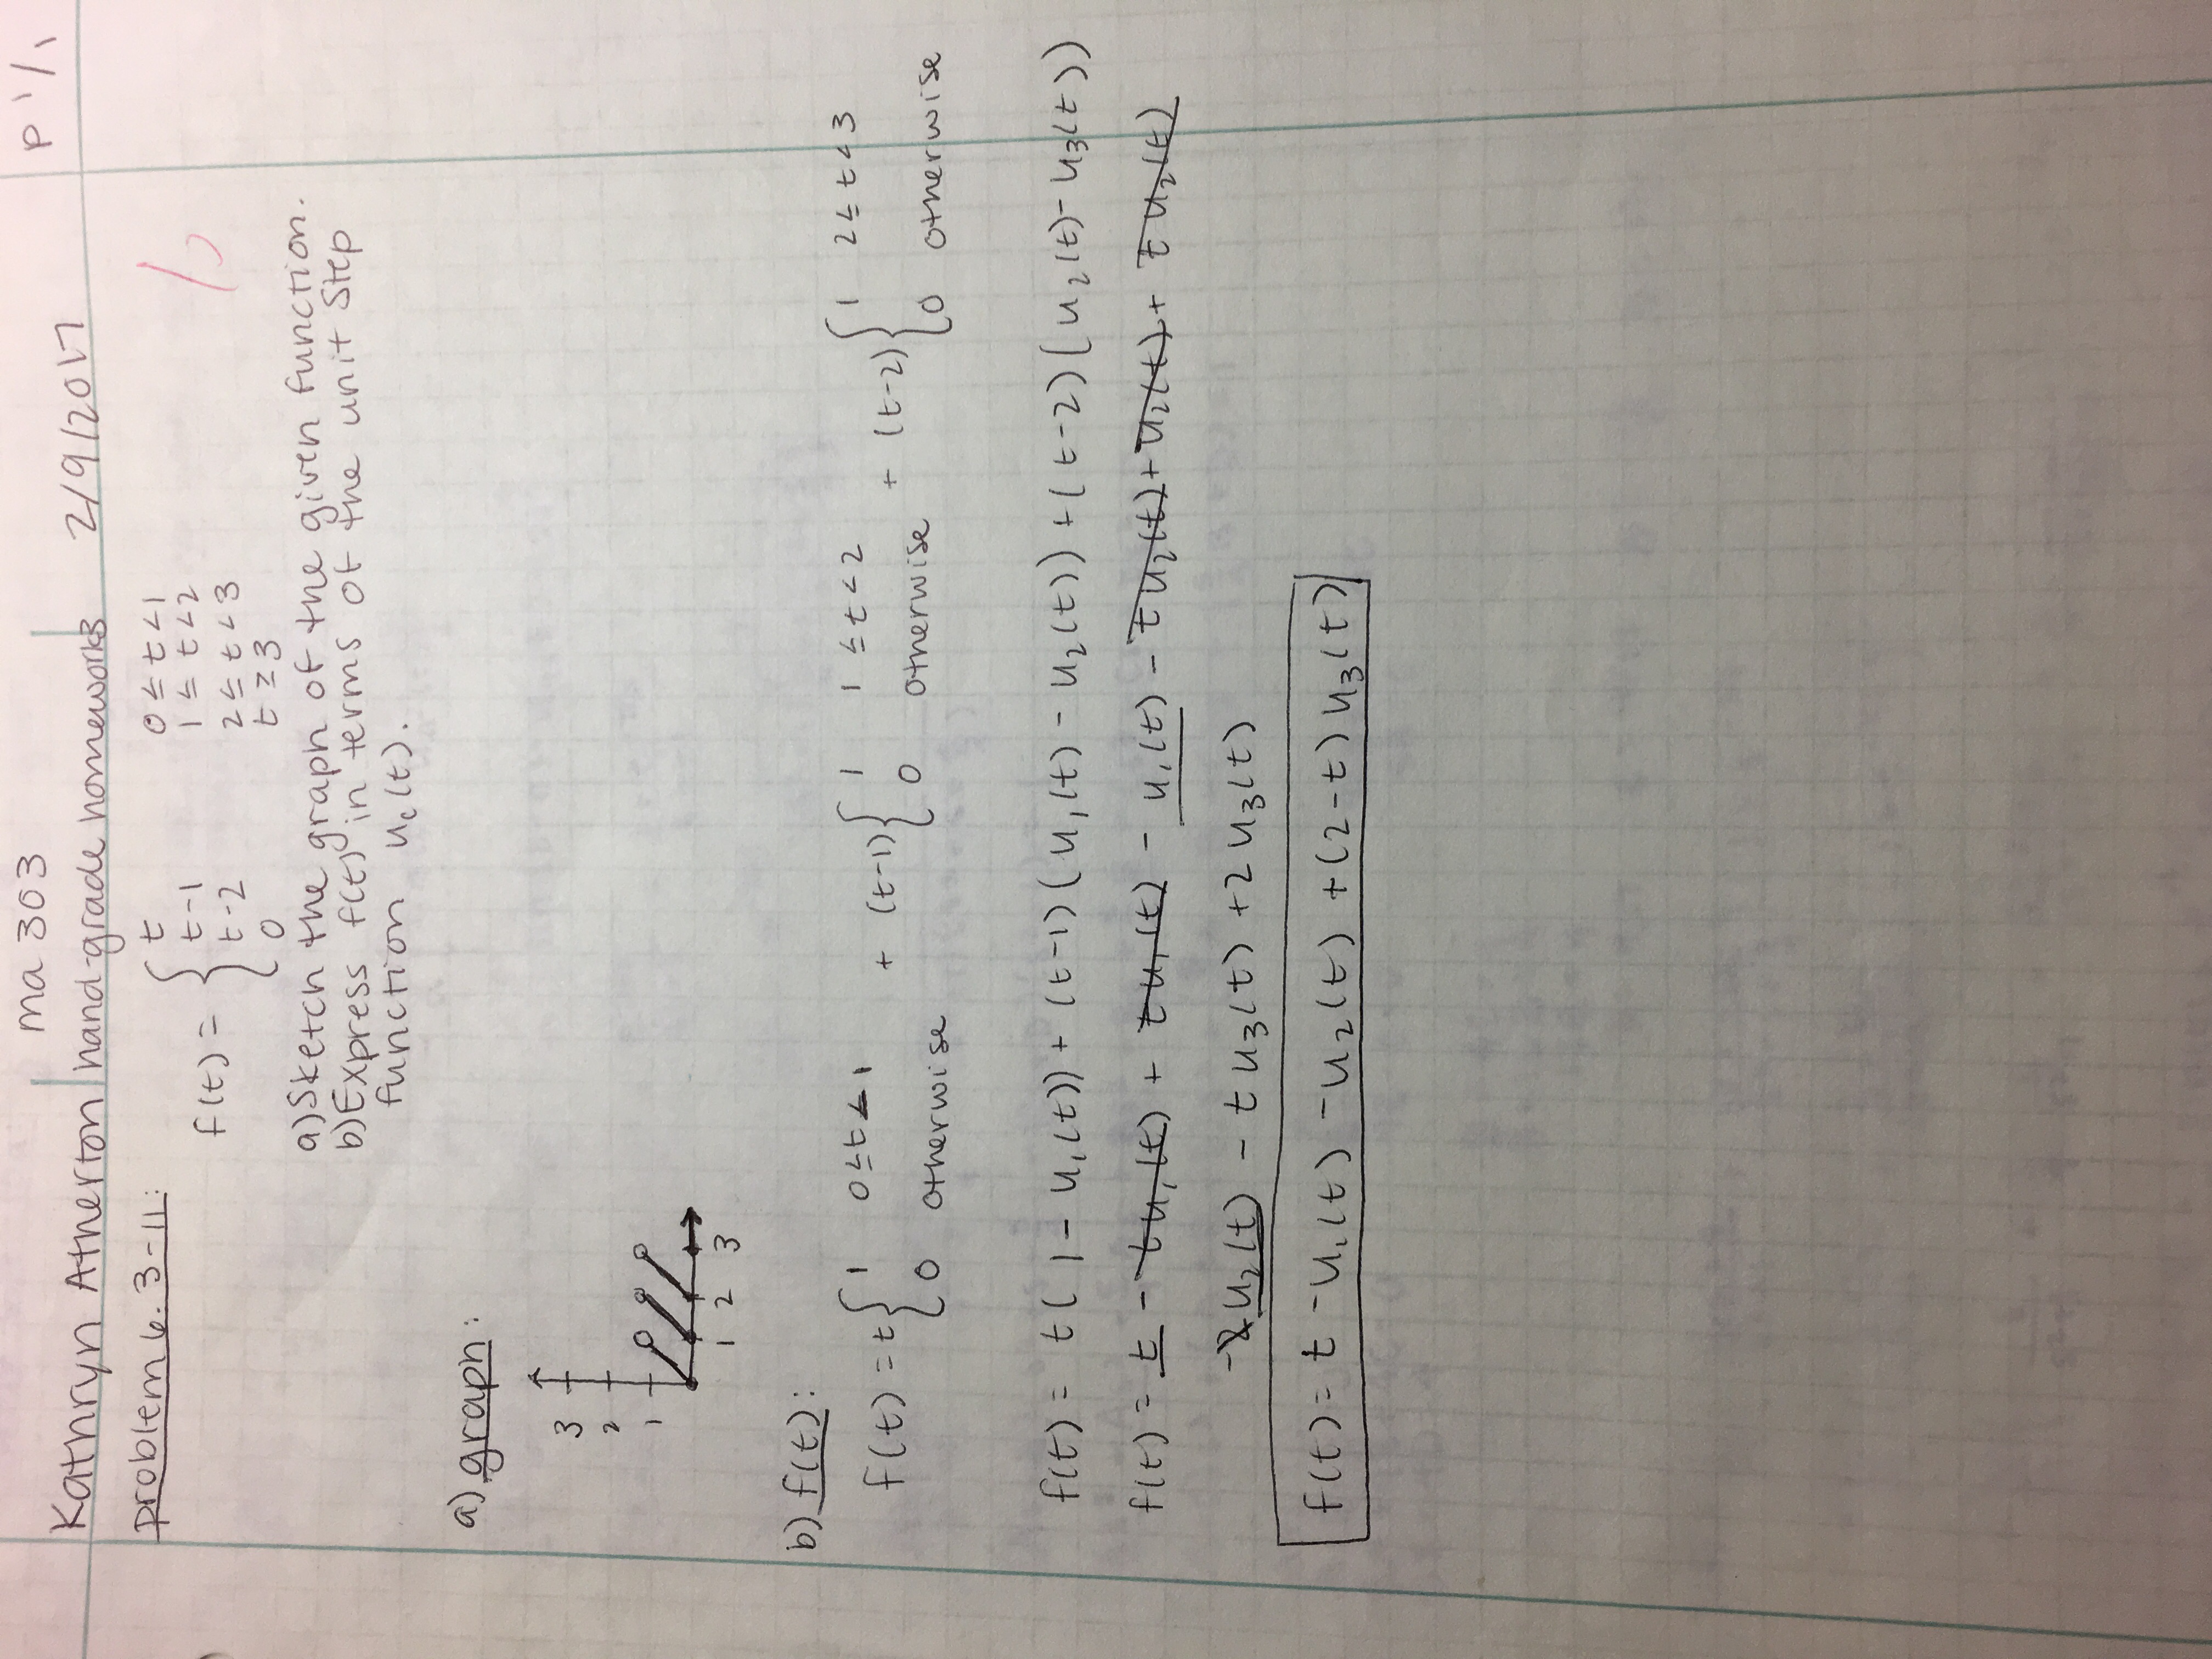 ma 303
P 1/1
Kathryn Atherton hand-grade homework 3 2/9/2017
problem 6.3-11:
f(t) = { t 0 ≤ t < 1
t-1 1 ≤ t < 2
t-2 2 ≤ t < 3
0 t ≥ 3
a) Sketch the graph of the given function.
b) Express f(t) in terms of the unit step
function u_c(t).
a) graph:
3
2
1
1 2 3
b) f(t):
f(t) = t { 1 0 ≤ t < 1 + (t-1) { 1 1 ≤ t < 2 + (t-2) { 1 2 ≤ t < 3
0 otherwise 0 otherwise 0 otherwise
f(t) = t(1 - u₁(t)) + (t-1)(u₁(t) - u₂(t)) + (t-2)(u₂(t) - u₃(t))
f(t) = t - tu₁(t) + tu₁(t) - u₁(t) - tu₂(t) + u₂(t) + tu₂(t)
-2u₂(t) - tu₃(t) + 2u₃(t)
f(t) = t - u₁(t) - u₂(t) + (2-t)u₃(t)